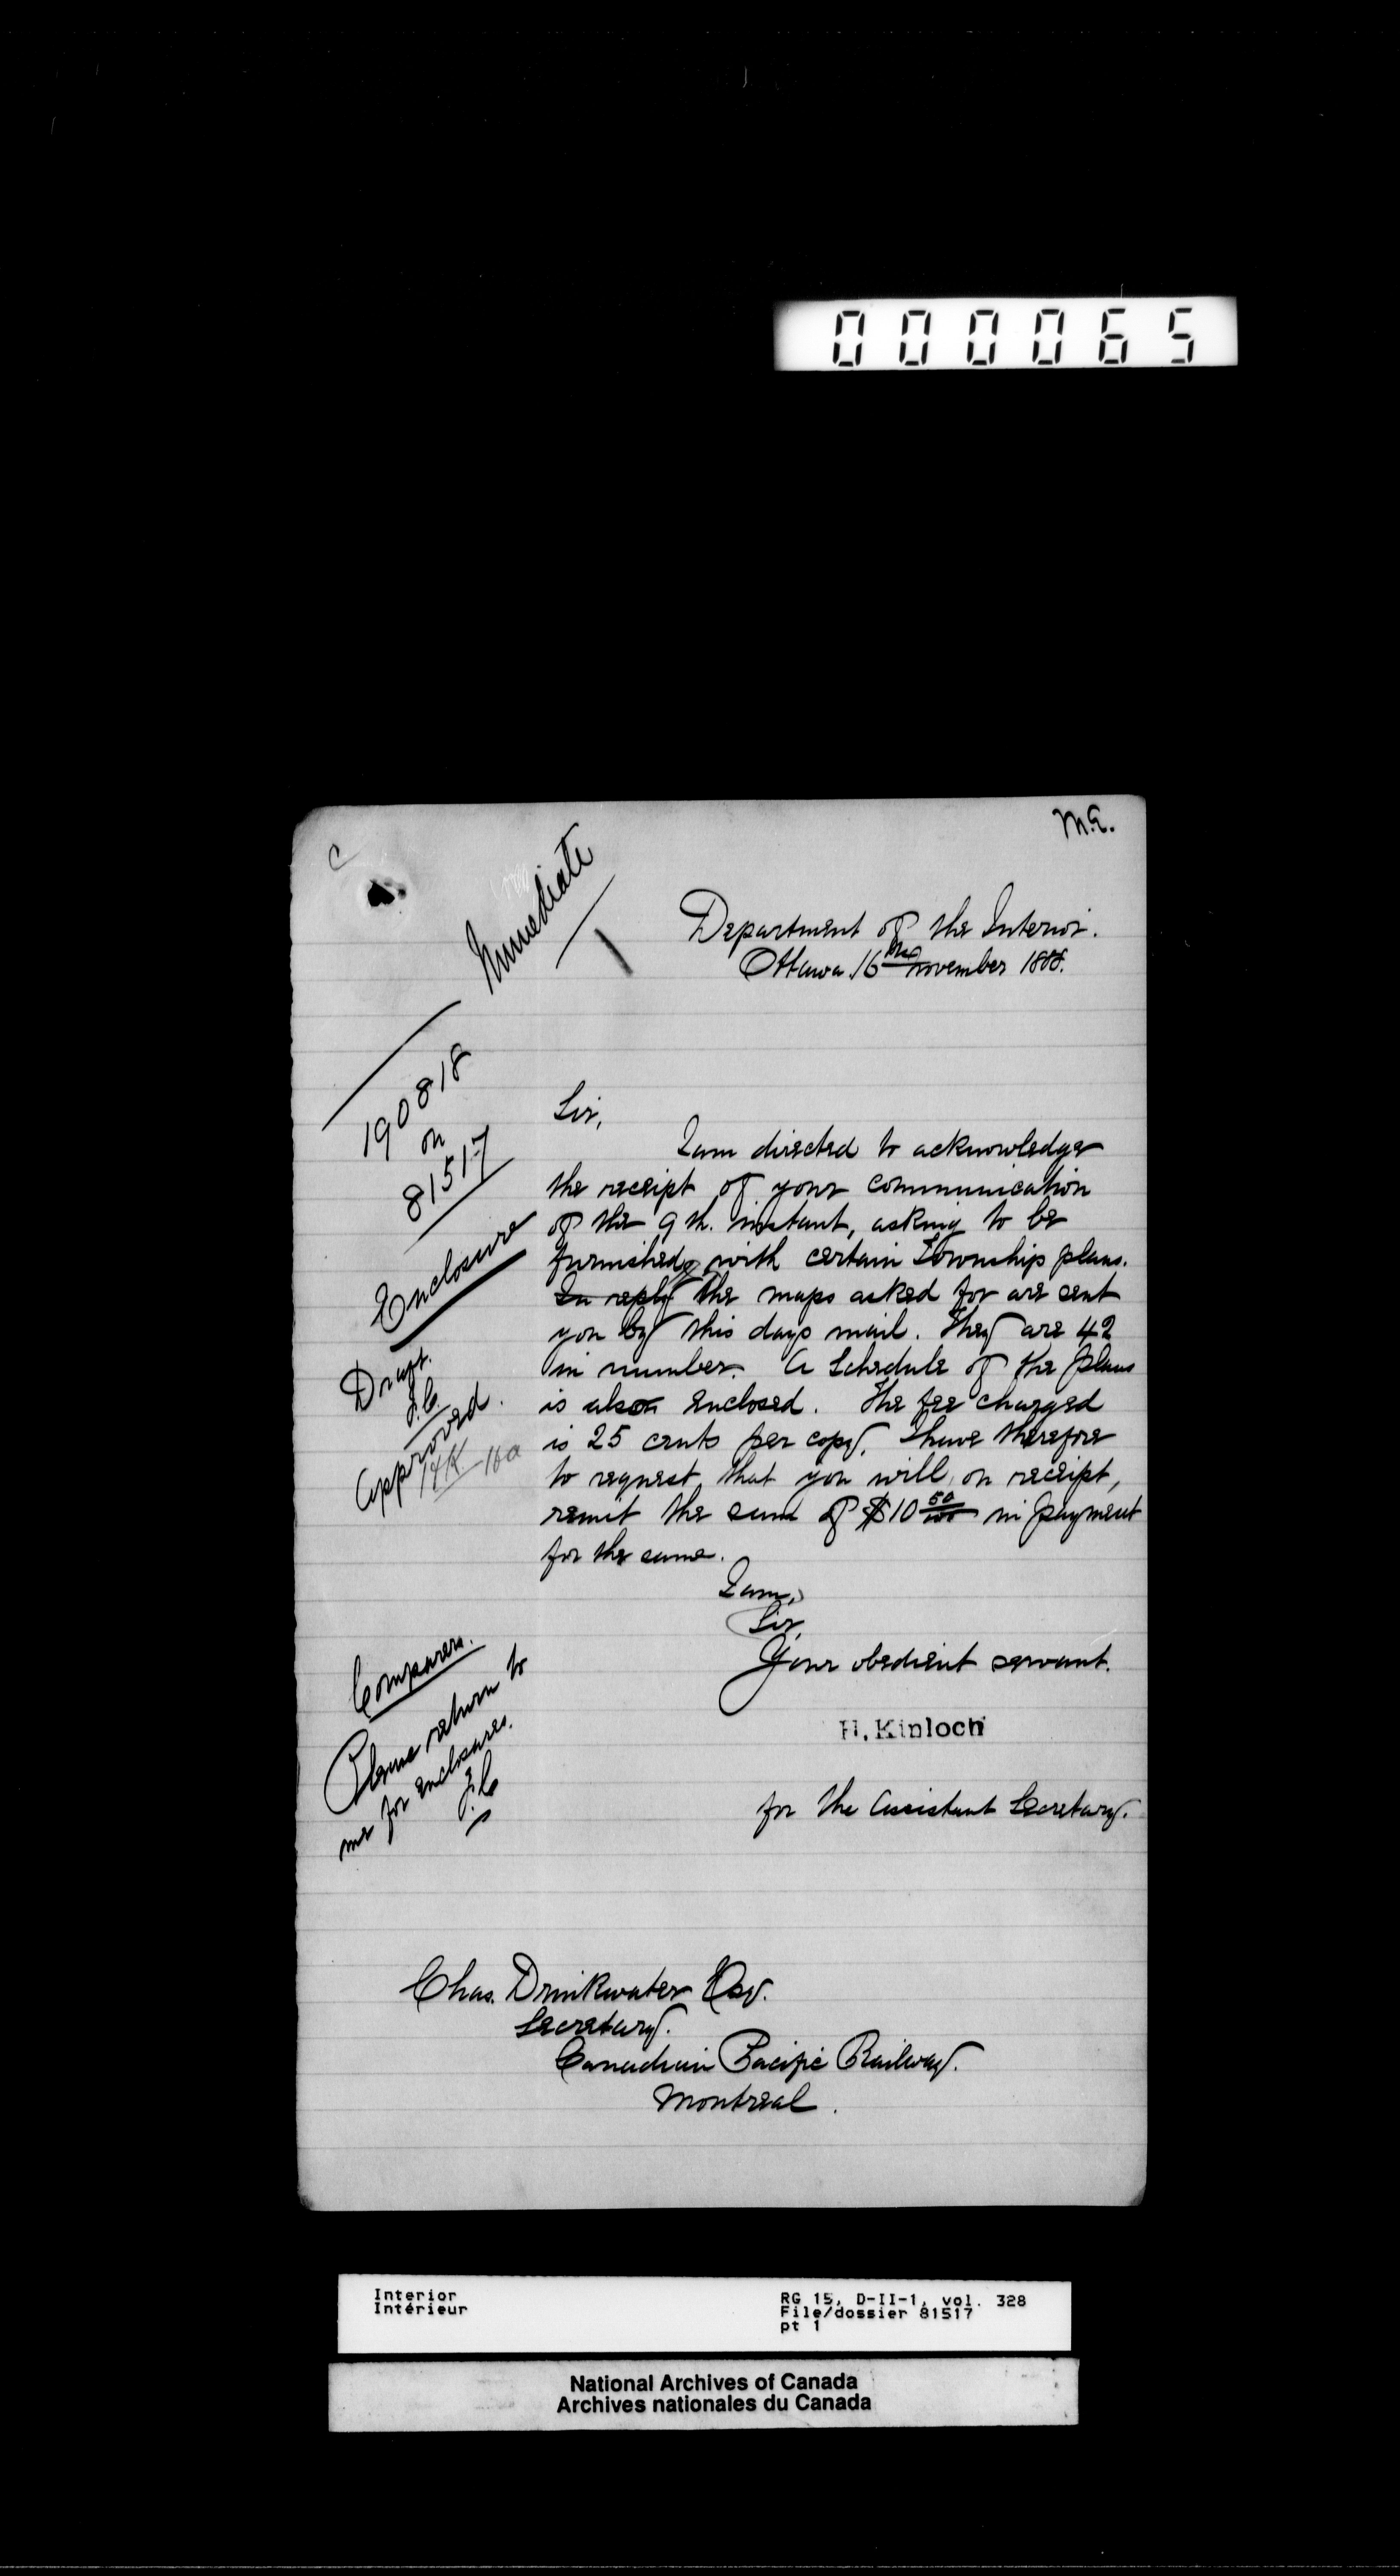 000065
M.E.
C
Immediate
Department of the Interior.
Ottawa 16th November 1888.
190818
on
81517
Enclosure
Draft.
J.C.
Approved.
HK 16
Sir,
I am directed to acknowledge
the receipt of your communication
of the 9th. instant, asking to be
furnished with certain Township plans.
In reply the maps asked for are sent
you by this days mail. They are 42
in number. A Schedule of the plans
is also enclosed. The fee charged
is 25 cents per copy. I have therefore
to request that you will, on receipt,
remit the sum of $10 50/100 in payment
for the same.
I am,
Sir,
Your obedient servant.
H. Kinloch
for the Assistant Secretary.
Comparers.
Please return to
me for enclosures.
J.C
Chas. Drinkwater Esq.
Secretary.
Canadian Pacific Railway.
Montreal.
Interior
Intérieur
RG 15, D-II-1, vol. 328
File/dossier 81517
pt 1
National Archives of Canada
Archives nationales du Canada